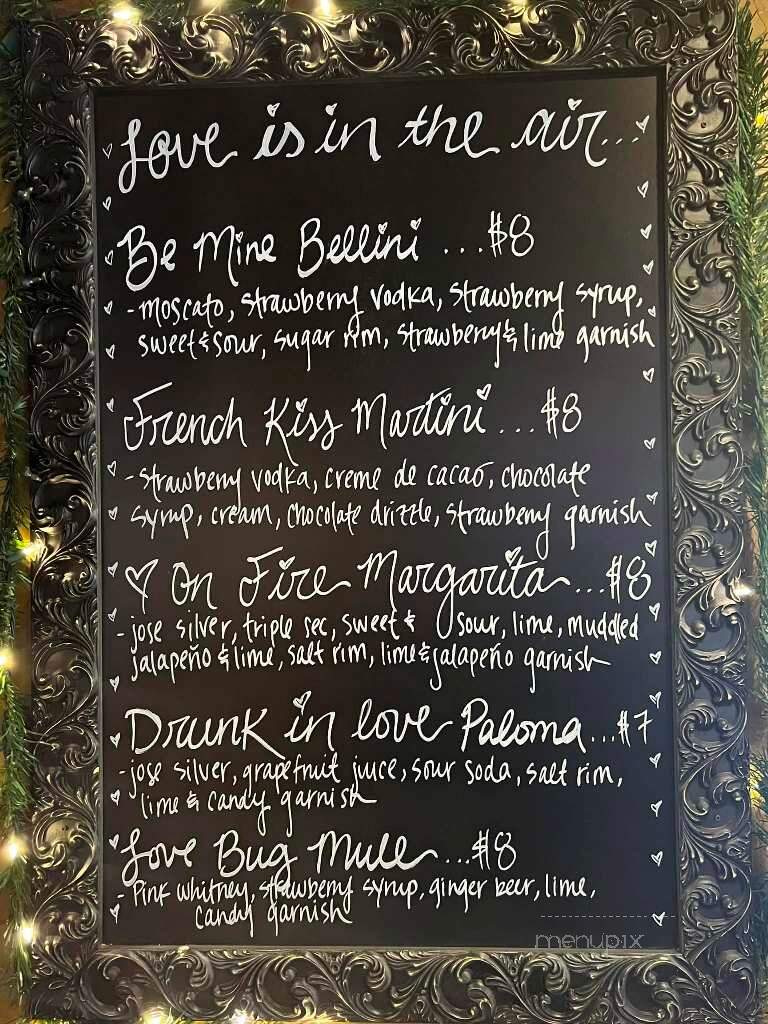 Love is in the air...
Be Mine Bellini ...$8
- moscato, strawberry vodka, strawberry syrup,
sweet & sour, sugar rim, strawberry & lime garnish
French Kiss Martini ...$8
- strawberry vodka, creme de cacao, chocolate
syrup, cream, chocolate drizzle, strawberry garnish
♡ On Fire Margarita ...$8
- jose silver, triple sec, sweet & sour, lime, muddled
jalapeño & lime, salt rim, lime & jalapeño garnish
Drunk in love Paloma ...$7
- jose silver, grapefruit juice, sour soda, salt rim,
lime & candy garnish
Love Bug Mule ...$8
- Pink whitney, strawberry syrup, ginger beer, lime,
candy garnish
menupix